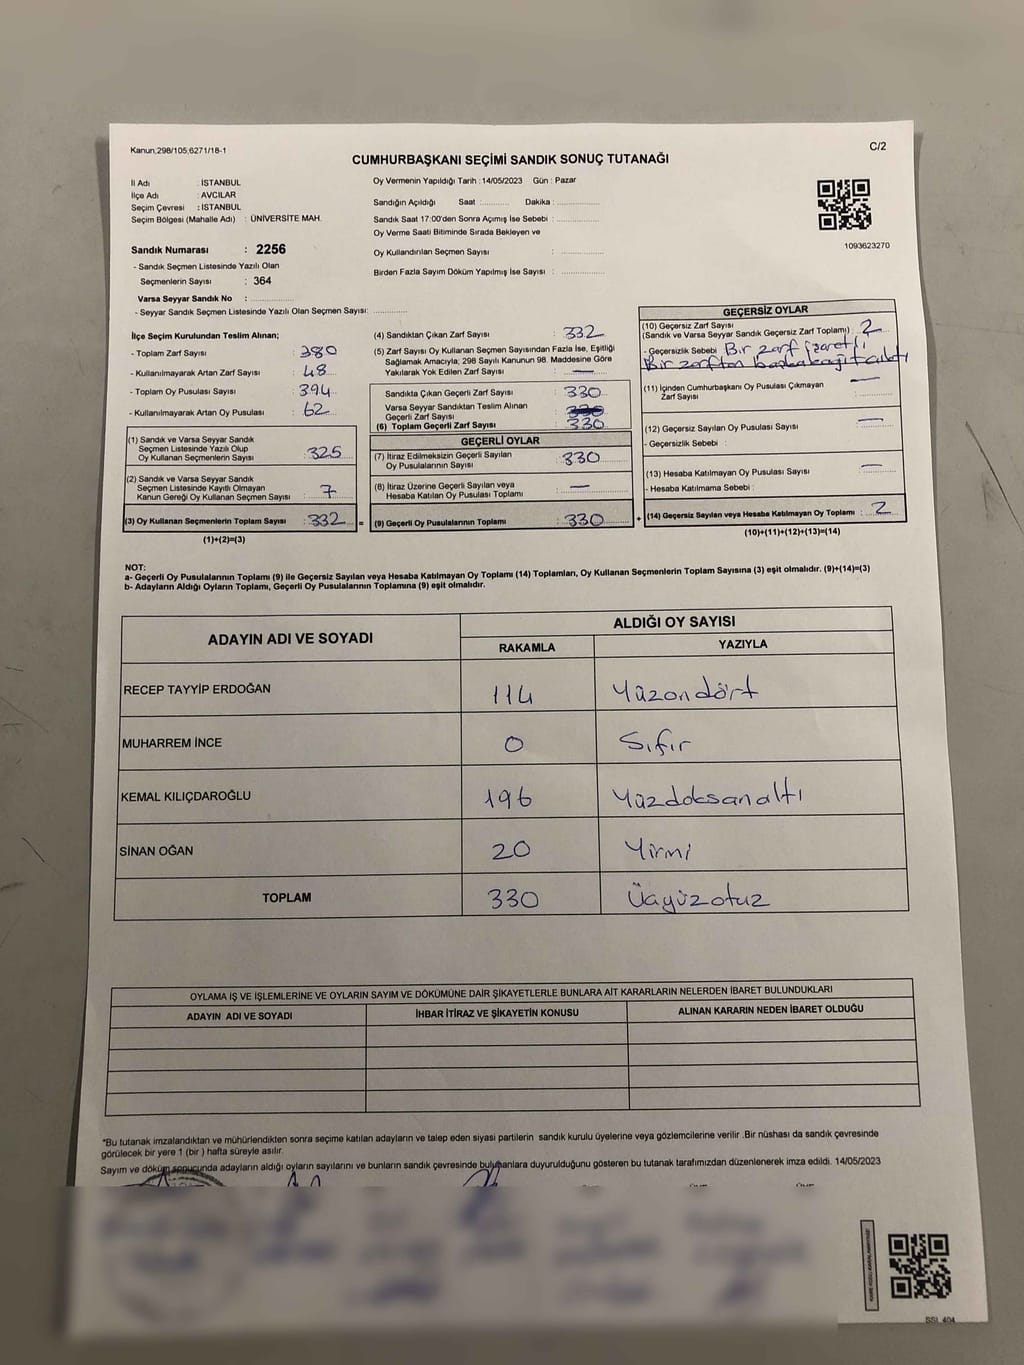 Kanun,298/105,6271/18-1
C/2
CUMHURBAŞKANI SEÇİMİ SANDIK SONUÇ TUTANAĞI
İl Adı : İSTANBUL
İlçe Adı : AVCILAR
Seçim Çevresi : İSTANBUL
Seçim Bölgesi (Mahalle Adı) : ÜNİVERSİTE MAH.
Oy Vermenin Yapıldığı Tarih : 14/05/2023 Gün : Pazar
Sandığın Açıldığı Saat :.......... Dakika :..............
Sandık Saat 17:00'den Sonra Açımış İse Sebebi :..............
Oy Verme Saati Bitiminde Sırada Bekleyen ve
Oy Kullandırılan Seçmen Sayısı :..............
Birden Fazla Sayım Döküm Yapılmış İse Sayısı :..............
1093623270
Sandık Numarası : 2256
- Sandık Seçmen Listesinde Yazılı Olan
Seçmenlerin Sayısı : 364
Varsa Seyyar Sandık No :..............
- Seyyar Sandık Seçmen Listesinde Yazılı Olan Seçmen Sayısı:..............
İlçe Seçim Kurulundan Teslim Alınan;
- Toplam Zarf Sayısı : 380
- Kullanılmayarak Artan Zarf Sayısı : 48
- Toplam Oy Pusulası Sayısı : 394
- Kullanılmayarak Artan Oy Pusulası : 62
(1) Sandık ve Varsa Seyyar Sandık
Seçmen Listesinde Yazılı Olup
Oy Kullanan Seçmenlerin Sayısı : 325
(2) Sandık ve Varsa Seyyar Sandık
Seçmen Listesinde Kayıtlı Olmayan
Kanun Gereği Oy Kullanan Seçmen Sayısı : 7
(3) Oy Kullanan Seçmenlerin Toplam Sayısı : 332 =
(1)+(2)=(3)
(4) Sandıktan Çıkan Zarf Sayısı : 332
(5) Zarf Sayısı Oy Kullanan Seçmen Sayısından Fazla İse, Eşitliği
Sağlamak Amacıyla; 298 Sayılı Kanunun 98. Maddesine Göre
Yakılarak Yok Edilen Zarf Sayısı : —
Sandıkta Çıkan Geçerli Zarf Sayısı : 330
Varsa Seyyar Sandıktan Teslim Alınan
Geçerli Zarf Sayısı :
(6) Toplam Geçerli Zarf Sayısı : 330
GEÇERLİ OYLAR
(7) İtiraz Edilmeksizin Geçerli Sayılan
Oy Pusulalarının Sayısı : 330
(8) İtiraz Üzerine Geçerli Sayılan veya
Hesaba Katılan Oy Pusulası Toplamı : —
(9) Geçerli Oy Pusulalarının Toplamı : 330 +
GEÇERSİZ OYLAR
(10) Geçersiz Zarf Sayısı
(Sandık ve Varsa Seyyar Sandık Geçersiz Zarf Toplamı) : 2
- Geçersizlik Sebebi : Bir zarf işaretli
Bir zarftan başka kağıt çıktı
(11) İçinden Cumhurbaşkanı Oy Pusulası Çıkmayan
Zarf Sayısı : —
(12) Geçersiz Sayılan Oy Pusulası Sayısı : —
- Geçersizlik Sebebi :
(13) Hesaba Katılmayan Oy Pusulası Sayısı : —
- Hesaba Katılmama Sebebi :
(14) Geçersiz Sayılan veya Hesaba Katılmayan Oy Toplamı : 2
(10)+(11)+(12)+(13)=(14)
NOT:
a- Geçerli Oy Pusulalarının Toplamı (9) ile Geçersiz Sayılan veya Hesaba Katılmayan Oy Toplamı (14) Toplamları, Oy Kullanan Seçmenlerin Toplam Sayısına (3) eşit olmalıdır. (9)+(14)=(3)
b- Adayların Aldığı Oyların Toplamı, Geçerli Oy Pusulalarının Toplamına (9) eşit olmalıdır.
ADAYIN ADI VE SOYADI
ALDIĞI OY SAYISI
RAKAMLA YAZIYLA
RECEP TAYYİP ERDOĞAN 114 Yüzondört
MUHARREM İNCE 0 Sıfır
KEMAL KILIÇDAROĞLU 196 Yüzdoksanaltı
SİNAN OĞAN 20 Yirmi
TOPLAM 330 Üçyüzotuz
OYLAMA İŞ VE İŞLEMLERİNE VE OYLARIN SAYIM VE DÖKÜMÜNE DAİR ŞİKAYETLERLE BUNLARA AİT KARARLARIN NELERDEN İBARET BULUNDUKLARI
ADAYIN ADI VE SOYADI İHBAR İTİRAZ VE ŞİKAYETİN KONUSU ALINAN KARARIN NEDEN İBARET OLDUĞU
*Bu tutanak imzalandıktan ve mühürlendikten sonra seçime katılan adayların ve talep eden siyasi partilerin sandık kurulu üyelerine veya gözlemcilerine verilir .Bir nüshası da sandık çevresinde
görülecek bir yere 1 (bir ) hafta süreyle asılır.
Sayım ve döküm sonucunda adayların aldığı oyların sayılarını ve bunların sandık çevresinde bulunanlara duyurulduğunu gösteren bu tutanak tarafımızdan düzenlenerek imza edildi. 14/05/2023
SSİ. 404